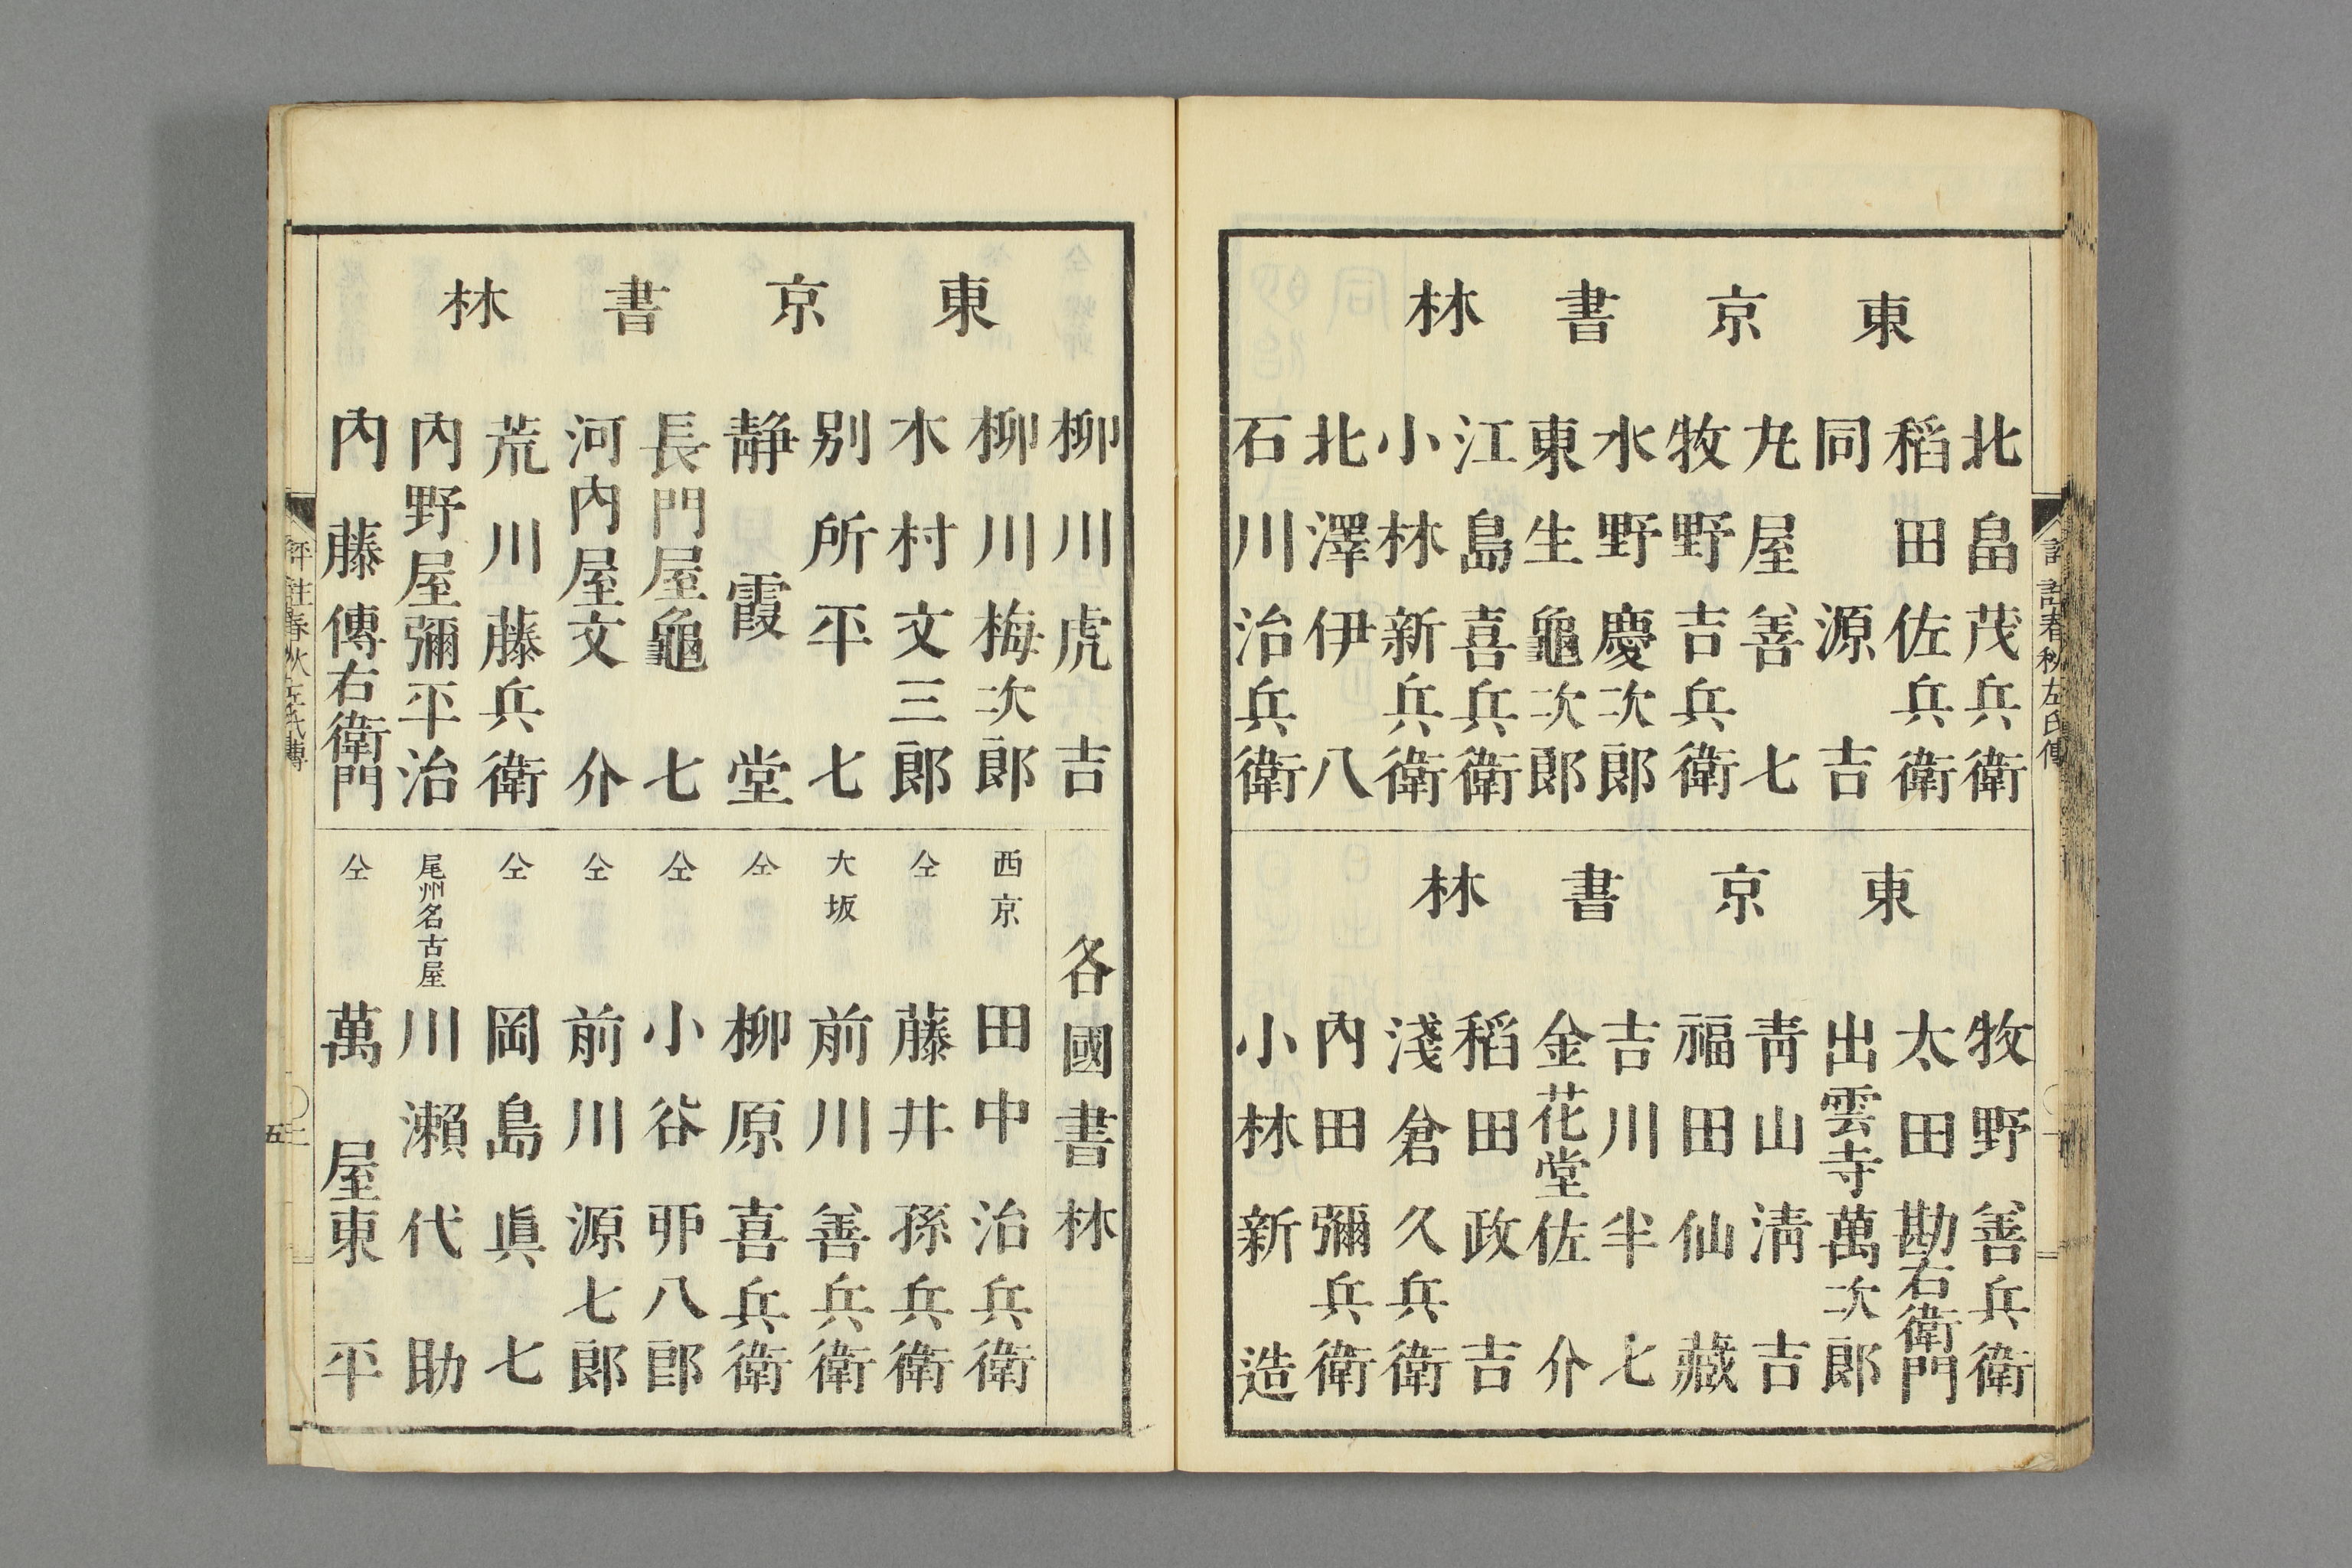 東京書林
北畠茂兵衛
稻田佐兵衛
同源吉
丸屋善七
牧野吉兵衛
水野慶次郎
東生龜次郎
江島喜兵衛
小林新兵衛
北澤伊八
石川治兵衛
東京書林
牧野善兵衛
太田勘右衛門
出雲寺萬次郎
青山清吉
福田仙藏
吉川半七
金花堂佐介
稻田政吉
淺倉久兵衛
內田彌兵衛
小林新造
評註春秋左氏傳
東京書林
柳川虎吉
柳川梅次郎
木村文三郎
別所平七
靜霞堂
長門屋龜七
河內屋文介
荒川藤兵衛
內野屋彌平治
內藤傳右衛門
各國書林
西京 田中治兵衛
仝 藤井孫兵衛
大坂 前川善兵衛
仝 柳原喜兵衛
仝 小谷卯八郎
仝 前川源七郎
仝 岡島眞七
尾州名古屋 川瀨代助
仝 萬屋東平
評註春秋左氏傳